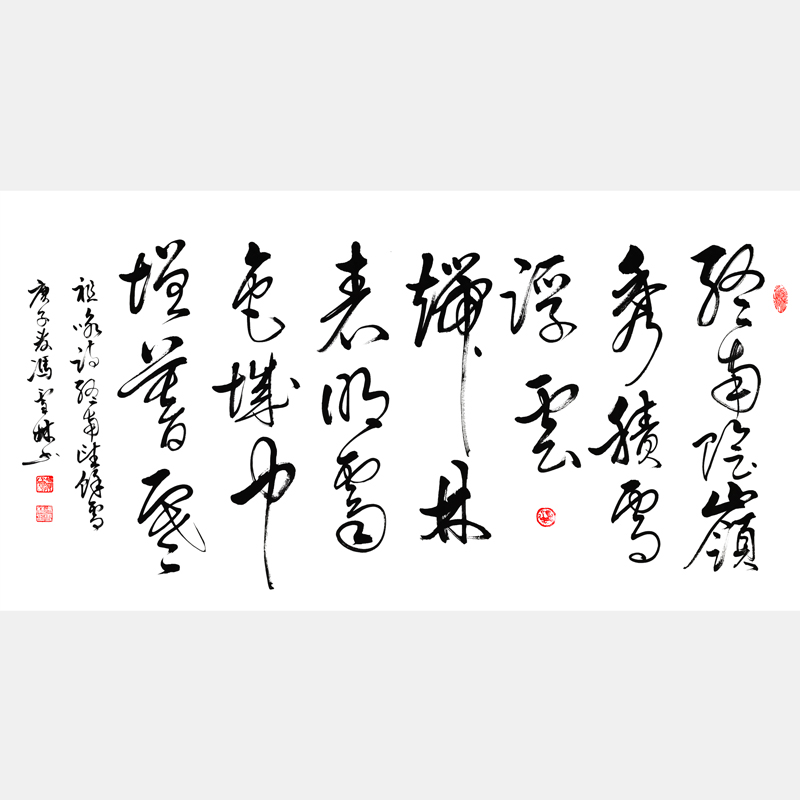 終南陰嶺
秀積雪
浮雲
端林
表明霽
色城中
增暮寒
祖詠詩終南望餘雪
庚子春馮雪林书